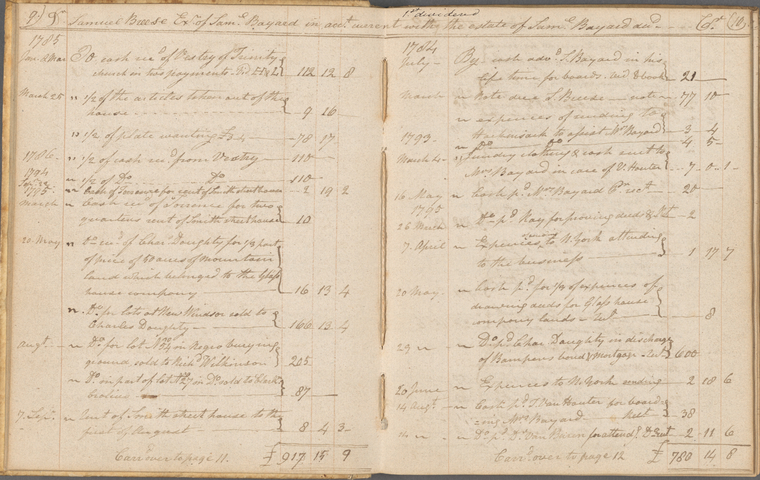 9) Dr Samuel Breese Exr of Saml Bayard in acct current
1785
To cash recd of Vestry of Trinity
church in two payments 112 12 8
March 25 " 1/2 of the articles taken out of the
house 9 16
" 1/2 of plate wanting 78 17
1786 " 1/2 of cash recd from Vestry 110
1794 " 1/2 of Do Do 110
1785 " Cash of for rent of Smith street house 2 19 2
March " Cash recd of for two
quarters rent of Smith street house 10
20 May " Do recd of Char. Doughty for 1/2 part
of price of 60 acres of mountain
land which belonged to the Glass
house company 16 13 4
" Do for lots at New Windsor sold to
Charles Doughty 166 13 4
Augt " Do for lot in Negro burying
ground, sold to Richd Wilkinson 205
" Do on part of lot on Do sold to
87
7 Sep. " of Smith street house to the
first of August 8 4 3
Carrd over to page 11. £ 917 15 9
1st dividend
with the estate of Saml Bayard decd Cr. (10
1784
July By cash advd S. Bayard in his
life time for boards 21
March " Note S. Breese 77 10
" expences of sending to
Hackinsack to Mrs Bayard 3 4
1793 " Do Do 4 5
March 4 " Sundry clothing & cash sent to
Mrs Bayard in care of V. Hauter 7 0 1
16 May " Cash pd Mrs Bayard Pr rect 20
1795
26 March " Do pd Kay for proving deed 2
7 April " Expences to N. York attending
to the business 1 17 7
20 May " Cash pd for 1/2 of expences of
drawing deeds for Glass house
company lands 8
29 " " Do pd Char Doughty in discharge
of Bampers bond & mortgage 600
20 June " Expences to N. York sending 2 18 6
14 Augt " Cash pd J. Van Hauter for board
ing Mrs Bayard Rect 38
" " " Do pd Dr Van Buren for attende Do Rect 2 11 6
Carrd over to page 12 £ 780 14 8